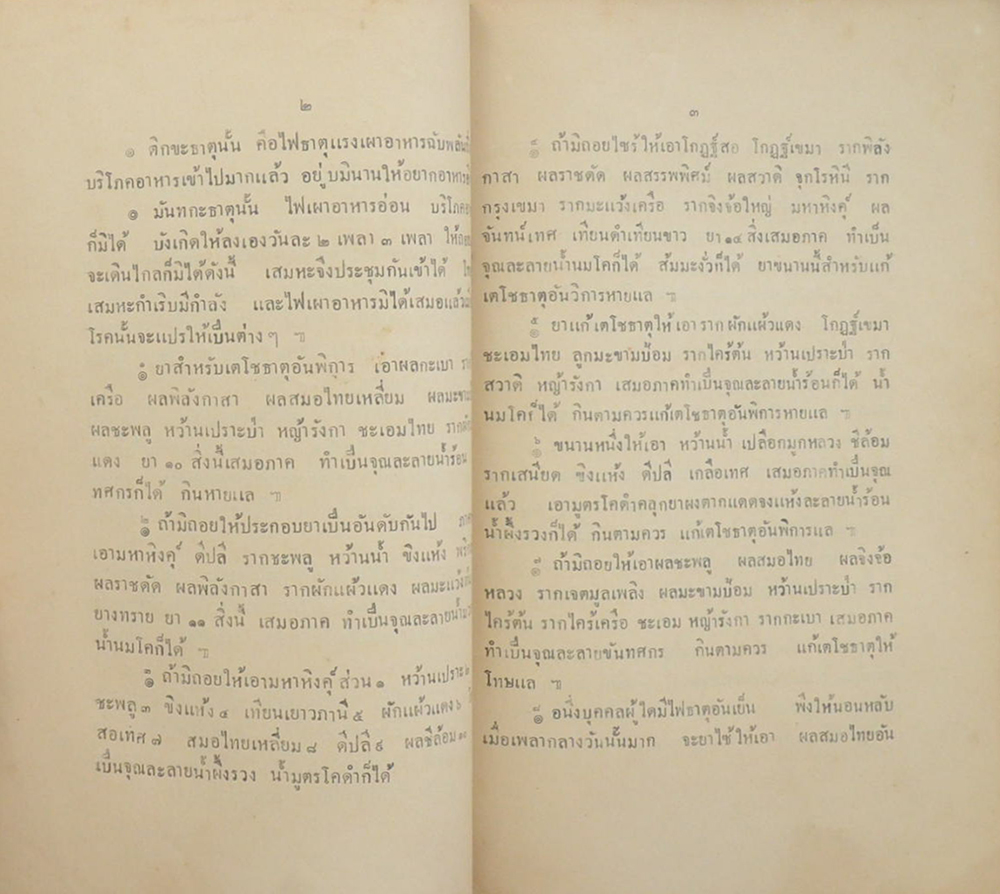 ๒
๏ ติกขะธาตุนั้น คือไฟธาตุแรงเผาอาหารฉับพลัน
บริโภคอาหารเข้าไปมากแล้ว อยู่บมินานให้อยากอาหาร
๏ มันทกะธาตุนั้น ไฟเผาอาหารอ่อน บริโภค
ก็มิได้ บังเกิดให้ลงเองวันละ ๒ เพลา ๓ เพลา
จะเดินไกลก็มิได้ดังนี้ เสมหะจึงประชุมกันเข้าได้
เสมหะกำเริบมีกำลัง และไฟเผาอาหารมิได้เสมอแล้ว
โรคนั้นจะแปรให้เปื่นต่าง ๆ ฯ
ยาสำหรับเตโชธาตุอันพิการ เอาผลกะเบา
เครือ ผลพิลังกาสา ผลสมอไทยเหลี่ยม
ผลชะพลู หว้านเปราะบ่า หญ้ารังกา ชะเอมไทย
แดง ยา ๑๐ สิ่งนี้เสมอภาค ทำเปื่นจุณละลายน้ำร้อน
ทศกรก็ได้ กินหายแล ฯ
ถ้ามิถอยให้ประกอบยาเปื่นอันดับกันไป
เอามหาหิงคุ์ ดีปลี รากชะพลู หว้านน้ำ ขิงแห้ง
ผลราชดัด ผลพิลังกาสา รากผักแผ้วแดง
ยางทราย ยา ๑๑ สิ่งนี้ เสมอภาค ทำเปื่นจุณละลาย
น้ำนมโคก็ได้ ฯ
ถ้ามิถอยให้เอามหาหิงคุ์ส่วน ๑ หว้านเปราะ
ชะพลู ๓ ขิงแห้ง ๔ เทียนเยาวภานี ๕ ผักแผ้วแดง ๖
สอเทศ ๗ สมอไทยเหลี่ยม ๘ ดีปลี ๙ ผลชีล้อม ๑๐
เปื่นจุณละลายน้ำผึ้งรวง น้ำมูตรโคดำก็ได้
๓
ถ้ามิถอยไซร้ให้เอาโกฏฐ์สอ โกฏฐ์เขมา รากพิลัง
กาสา ผลราชดัด ผลสรรพพิศม์ ผลสวาดิ จุกโรหินี ราก
กรุงเขมา รากมะแว้งเครือ รากจิงจ้อใหญ่ มหาหิงคุ์ ผล
จันทน์เทศ เทียนดำเทียนขาว ยา ๑๔ สิ่งเสมอภาค ทำเปื่น
จุณละลายน้ำนมโคก็ได้ ส้มมะงั่วก็ได้ ยาขนานนี้สำหรับแก้
เตโชธาตุอันวิการหายแล ฯ
๕ ยาแก้เตโชธาตุให้เอารากผักแผ้วแดง โกฏฐ์เขมา
ชะเอมไทย ลูกมะขามป้อม รากไคร้ต้น หว้านเปราะป่า ราก
สวาดิ หญ้ารังกา เสมอภาคทำเปื่นจุณละลายน้ำร้อนก็ได้ น้ำ
นมโคก็ได้ กินตามควรแก้เตโชธาตุอันพิการหายแล ฯ
๖ ขนานหนึ่งให้เอา หว้านน้ำ เปลือกมูกหลวง ชีล้อม
รากเสนียด ขิงแห้ง ดีปลี เกลือเทศ เสมอภาคทำเปื่นจุณ
แล้ว เอามูตรโคดำคลุกยาผงตากแดดจงแห้งละลายน้ำร้อน
น้ำผึ้งรวงก็ได้ กินตามควร แก้เตโชธาตุอันพิการแล ฯ
๗ ถ้ามิถอยให้เอาผลชะพลู ผลสมอไทย ผลจิงจ้อ
หลวง รากเจตมูลเพลิง ผลมะขามป้อม หว้านเปราะป่า ราก
ไคร้ต้น รากไคร้เครือ ชะเอม หญ้ารังกา รากกะเบา เสมอภาค
ทำเปื่นจุณละลายขันทศกร กินตามควร แก้เตโชธาตุให้
โทษแล ฯ
๘ อนึ่งบุคคลผู้ใดมีไฟธาตุอันเย็น พึงให้นอนหลับ
เมื่อเพลากลางวันนั้นมาก จะยาใช้ให้เอา ผลสมอไทยอัน